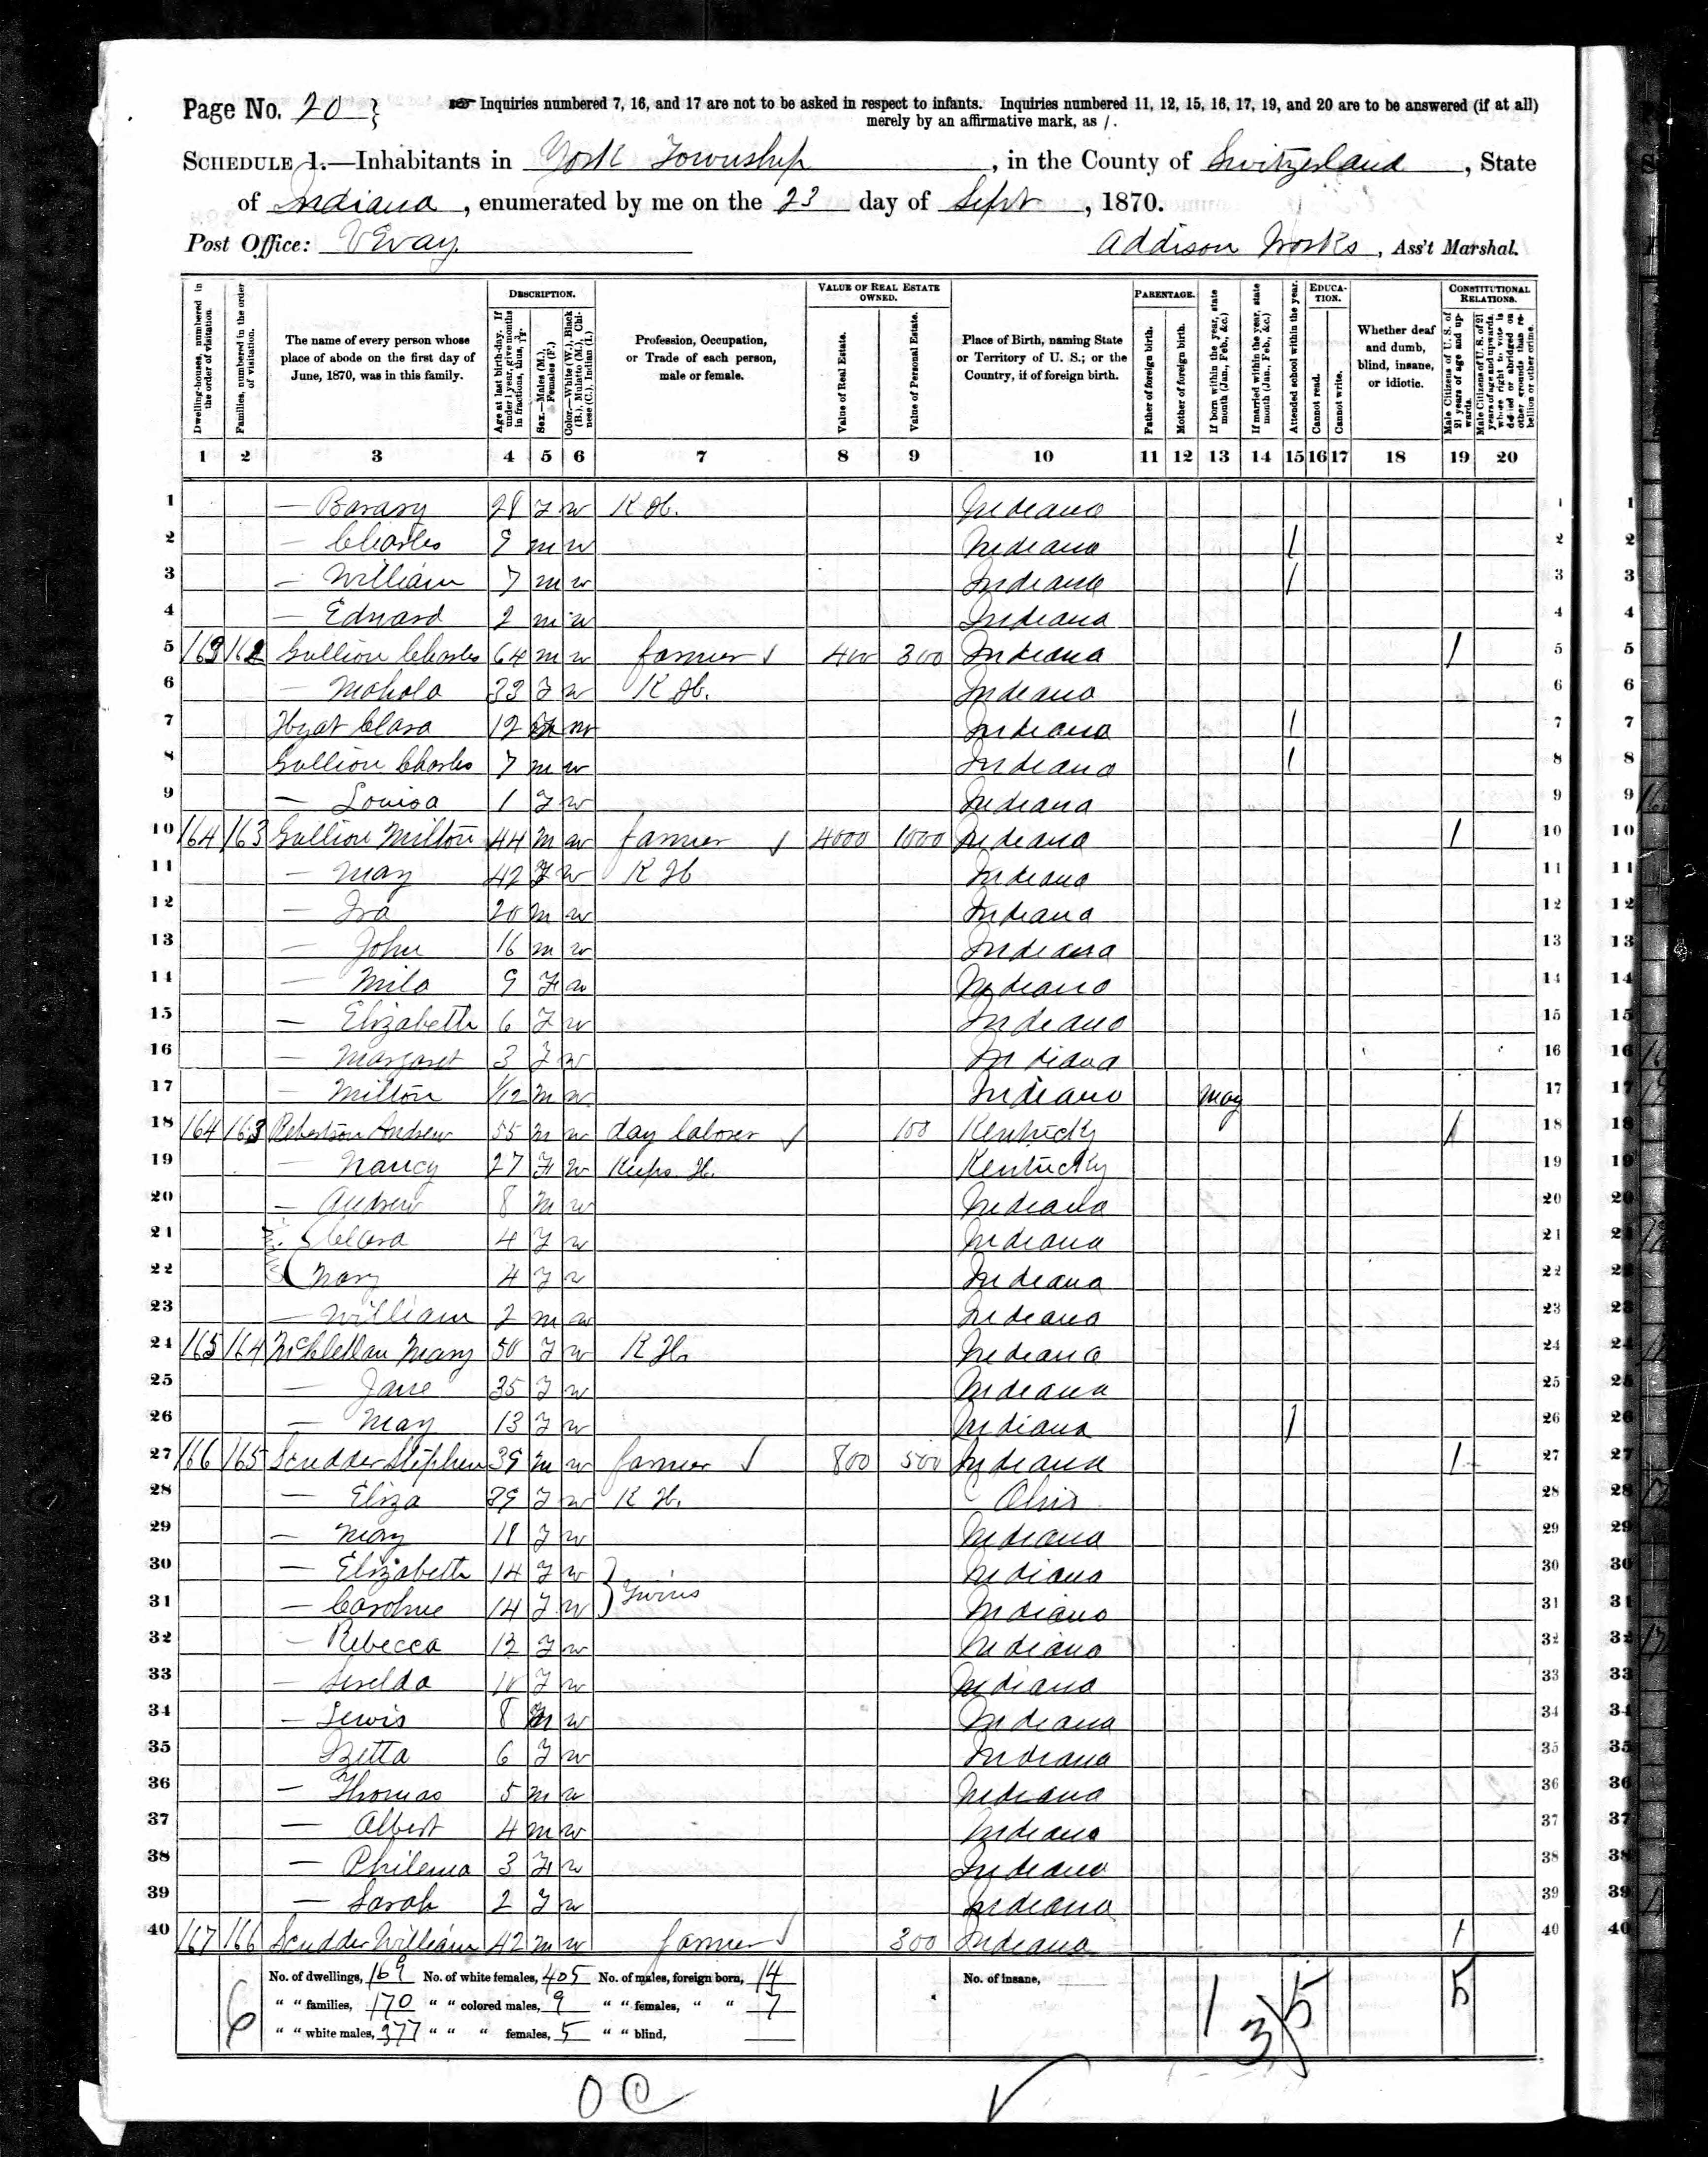 Page No. 20 } Inquiries numbered 7, 16, and 17 are not to be asked in respect to infants. Inquiries numbered 11, 12, 15, 16, 17, 19, and 20 are to be answered (if at all)
merely by an affirmative mark, as /.
SCHEDULE 1.—Inhabitants in York Township, in the County of Switzerland, State
of Indiana, enumerated by me on the 23 day of Sept, 1870.
Post Office: Vevay Addison Works, Ass't Marshal.
DESCRIPTION. VALUE OF REAL ESTATE OWNED. PARENTAGE. EDUCATION. CONSTITUTIONAL RELATIONS.
Dwelling-houses, numbered in the order of visitation.
Families, numbered in the order of visitation.
The name of every person whose place of abode on the first day of June, 1870, was in this family.
Age at last birth-day. If under 1 year, give months in fractions, thus, 3/12.
Sex.—Males (M.), Females (F.)
Color.—White (W.), Black (B.), Mulatto (M.), Chinese (C.), Indian (I.)
Profession, Occupation, or Trade of each person, male or female.
Value of Real Estate.
Value of Personal Estate.
Place of Birth, naming State or Territory of U. S.; or the Country, if of foreign birth.
Father of foreign birth.
Mother of foreign birth.
If born within the year, state month (Jan., Feb., &c.)
If married within the year, state month (Jan., Feb., &c.)
Attended school within the year.
Cannot read.
Cannot write.
Whether deaf and dumb, blind, insane, or idiotic.
Male Citizens of U. S. of 21 years of age and upwards.
Male Citizens of U. S. of 21 years of age and upwards, whose right to vote is denied or abridged on other grounds than rebellion or other crime.
1 2 3 4 5 6 7 8 9 10 11 12 13 14 15 16 17 18 19 20
1 — 28 F w K H. Indiana 1
2 — Charles 9 m w Indiana / 2
3 — William 7 m w Indiana / 3
4 — Edward 2 m w Indiana 4
5 163 162 Gullion Charles 64 m w farmer 400 300 Indiana / 5
6 — Mahala 33 F w K H. Indiana 6
7 Hyat Clara 12 F w Indiana / 7
8 Gullion Charles 7 m w Indiana / 8
9 — Louisa 1 F w Indiana 9
10 164 163 Gullion Milton 44 m w farmer 4000 1000 Indiana / 10
11 — May 42 F w K H Indiana 11
12 — Ira 20 m w Indiana 12
13 — John 16 m w Indiana 13
14 — Mila 9 F w Indiana 14
15 — Elizabeth 6 F w Indiana 15
16 — Margaret 3 F w Indiana 16
17 — Milton 1/12 m w Indiana May 17
18 164 163 Robertson Andrew 55 m w day laborer 100 Kentucky / 18
19 — Nancy 27 F w Keeps H. Kentucky 19
20 — Andrew 8 m w Indiana 20
21 Clara 4 F w Indiana 21
22 Mary 4 F w Indiana 22
23 — William 2 m w Indiana 23
24 165 164 McClellan Mary 50 F w K H. Indiana 24
25 — Jane 35 F w Indiana 25
26 — May 13 F w Indiana / 26
27 166 165 Scudder Stephen 39 m w farmer 800 500 Indiana / 27
28 — Eliza 39 F w K H. Ohio 28
29 — May 18 F w Indiana 29
30 — Elizabeth 14 F w } Twins Indiana 30
31 — Caroline 14 F w Indiana 31
32 — Rebecca 12 F w Indiana 32
33 — 10 F w Indiana 33
34 — Lewis 8 m w Indiana 34
35 6 F w Indiana 35
36 — Thomas 5 m w Indiana 36
37 — Albert 4 m w Indiana 37
38 — Philena 3 F w Indiana 38
39 — Sarah 2 F w Indiana 39
40 167 166 Scudder William 42 m w farmer 300 Indiana / 40
No. of dwellings, 169 No. of white females, 405 No. of males, foreign born, 14 No. of insane,
" " families, 170 " " colored males, 9 " " females, " " 7
" " white males, 377 " " " females, 5 " " blind,
6 1 3 5 5
O C